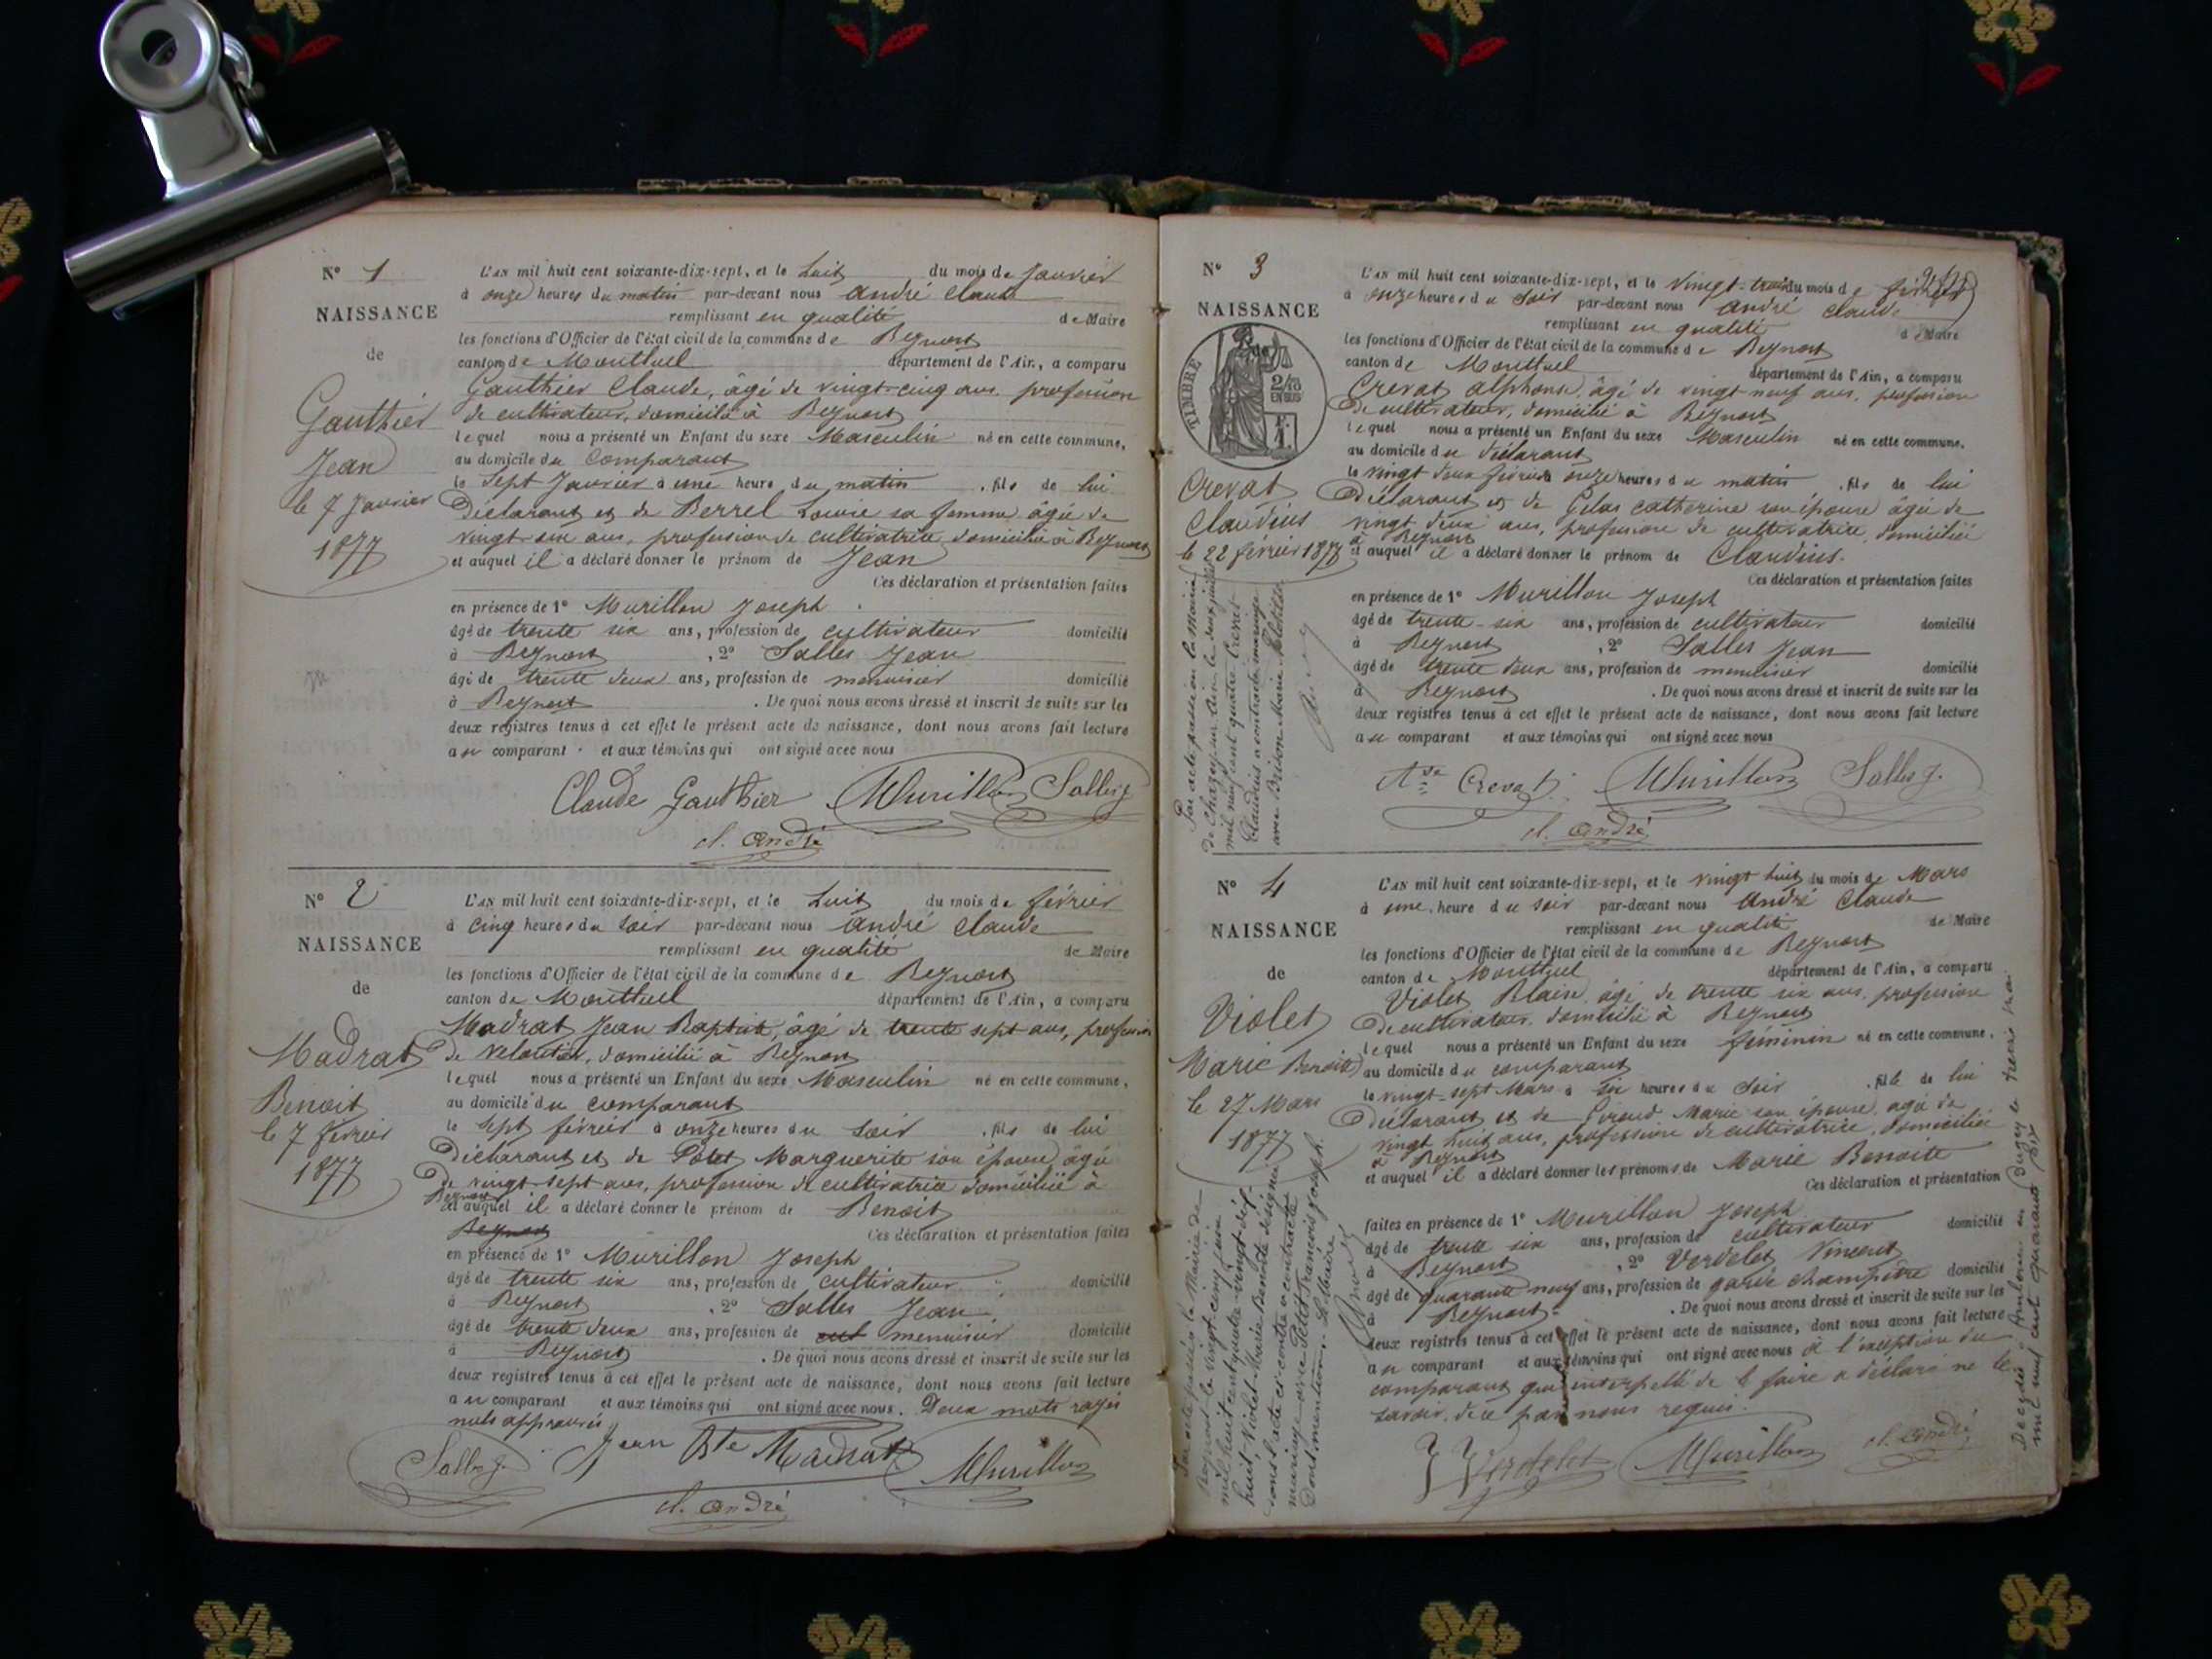 N° 1
NAISSANCE
de
Gauthier
Jean
le 7 Janvier
1877
L'AN mil huit cent soixante-dix-sept, et le huit du mois de Janvier
à onze heures du matin par-devant nous André Claude
remplissant en qualité de Maire
les fonctions d'Officier de l'état civil de la commune de Beynost
canton de Montluel département de l'Ain, a comparu
Gauthier Claude, âgé de vingt-cinq ans, profession
de cultivateur, domicilié à Beynost
lequel nous a présenté un Enfant du sexe Masculin né en cette commune,
au domicile du Comparant
le sept Janvier à une heure du matin, fils de lui
Déclarant et de Berrel Louise sa femme âgée de
vingt-six ans, profession de cultivatrice domiciliée à Beynost
et auquel il a déclaré donner le prénom de Jean
Ces déclaration et présentation faites
en présence de 1° Murillon Joseph
âgé de trente six ans, profession de cultivateur domicilié
à Beynost, 2° Salles Jean
âgé de trente deux ans, profession de menuisier domicilié
à Beynost. De quoi nous avons dressé et inscrit de suite sur les
deux registres tenus à cet effet le présent acte de naissance, dont nous avons fait lecture
au comparant et aux témoins qui ont signé avec nous
Claude Gauthier Murillon Salles J.
Cl. André
N° 2
NAISSANCE
de
Madrat
Benoit
le 7 février
1877
L'AN mil huit cent soixante-dix-sept, et le huit du mois de février
à cinq heures du soir par-devant nous André Claude
remplissant en qualité de Maire
les fonctions d'Officier de l'état civil de la commune de Beynost
canton de Montluel département de l'Ain, a comparu
Madrat Jean Baptiste, âgé de trente sept ans, profession
de veloutier, domicilié à Beynost
lequel nous a présenté un Enfant du sexe Masculin né en cette commune,
au domicile du comparant
le sept février à onze heures du soir, fils de lui
Déclarant et de Potet Marguerite son épouse, âgée
de vingt-sept ans, profession de cultivatrice domiciliée à
Beynost et auquel il a déclaré donner le prénom de Benoit
Beynost Ces déclaration et présentation faites
en présence de 1° Murillon Joseph
âgé de trente six ans, profession de cultivateur domicilié
à Beynost, 2° Salles Jean
âgé de trente deux ans, profession de cult menuisier domicilié
à Beynost. De quoi nous avons dressé et inscrit de suite sur les
deux registres tenus à cet effet le présent acte de naissance, dont nous avons fait lecture
au comparant et aux témoins qui ont signé avec nous. Deux mots rayés
nuls approuvés
Salles J. Jean Bte Madrat Murillon
Cl. André
N° 3
NAISSANCE
TIMBRE
2/10
EN SUS
Crevat
Claudius
le 22 février 1877
Par acte passé en la Mairie
mil neuf cent quatre Crevat
Claudius a contracté mariage
avec Brison Marie Clotilde
L'AN mil huit cent soixante-dix-sept, et le vingt-trois du mois de février
à onze heures du soir par-devant nous André Claude
remplissant en qualité de Maire
les fonctions d'Officier de l'état civil de la commune de Beynost
canton de Montluel département de l'Ain, a comparu
Crevat alphonse, âgé de vingt-neuf ans, profession
de cultivateur, domicilié à Beynost
lequel nous a présenté un Enfant du sexe Masculin né en cette commune,
au domicile du déclarant
le vingt deux février onze heures du matin, fils de lui
Déclarant et de Gelas catherine son épouse âgée de
vingt deux ans, profession de cultivatrice, domiciliée
à Beynost et auquel il a déclaré donner le prénom de Claudius.
Ces déclaration et présentation faites
en présence de 1° Murillon Joseph
âgé de trente-six ans, profession de cultivateur domicilié
à Beynost, 2° Salles Jean
âgé de trente deux ans, profession de menuisier domicilié
à Beynost. De quoi nous avons dressé et inscrit de suite sur les
deux registres tenus à cet effet le présent acte de naissance, dont nous avons fait lecture
au comparant et aux témoins qui ont signé avec nous
Ase Crevat Murillon Salles J.
Cl. André
N° 4
NAISSANCE
de
Violet
Marie Benoite
le 27 Mars
1877
Par acte passé à la Mairie de
Beynost le vingt-cinq juin
mil huit cent quatre-vingt-dix-
huit, Violet Marie Benoite désignée
dans l'acte ci-contre a contracté
mariage avec Petit François Joseph.
Dont mention. Le Maire
L'AN mil huit cent soixante-dix-sept, et le vingt huit du mois de Mars
à une heure du soir par-devant nous André Claude
remplissant en qualité de Maire
les fonctions d'Officier de l'état civil de la commune de Beynost
canton de Montluel département de l'Ain, a comparu
Violet Blaise, âgé de trente six ans, profession
de cultivateur, domicilié à Beynost
lequel nous a présenté un Enfant du sexe féminin né en cette commune,
au domicile du comparant
le vingt-sept Mars à six heures du soir, fille de lui
Déclarant et de Giraud Marie son épouse, âgée de
vingt huit ans, profession de cultivatrice, domiciliée
à Beynost
et auquel il a déclaré donner les prénoms de Marie Benoite
Ces déclaration et présentation
faites en présence de 1° Murillon Joseph
âgé de trente six ans, profession de cultivateur domicilié
à Beynost, 2° Verdelet Vincent
âgé de quarante neuf ans, profession de garde champêtre domicilié
à Beynost. De quoi nous avons dressé et inscrit de suite sur les
deux registres tenus à cet effet le présent acte de naissance, dont nous avons fait lecture
au comparant et aux témoins qui ont signé avec nous à l'exception du
comparant qui interpellé de le faire a déclaré ne le
savoir, de ce par nous requis.
Verdelet Murillon Cl. André
Décédée à Ambérieu en Bugey le treize mai
mil neuf cent quarante six